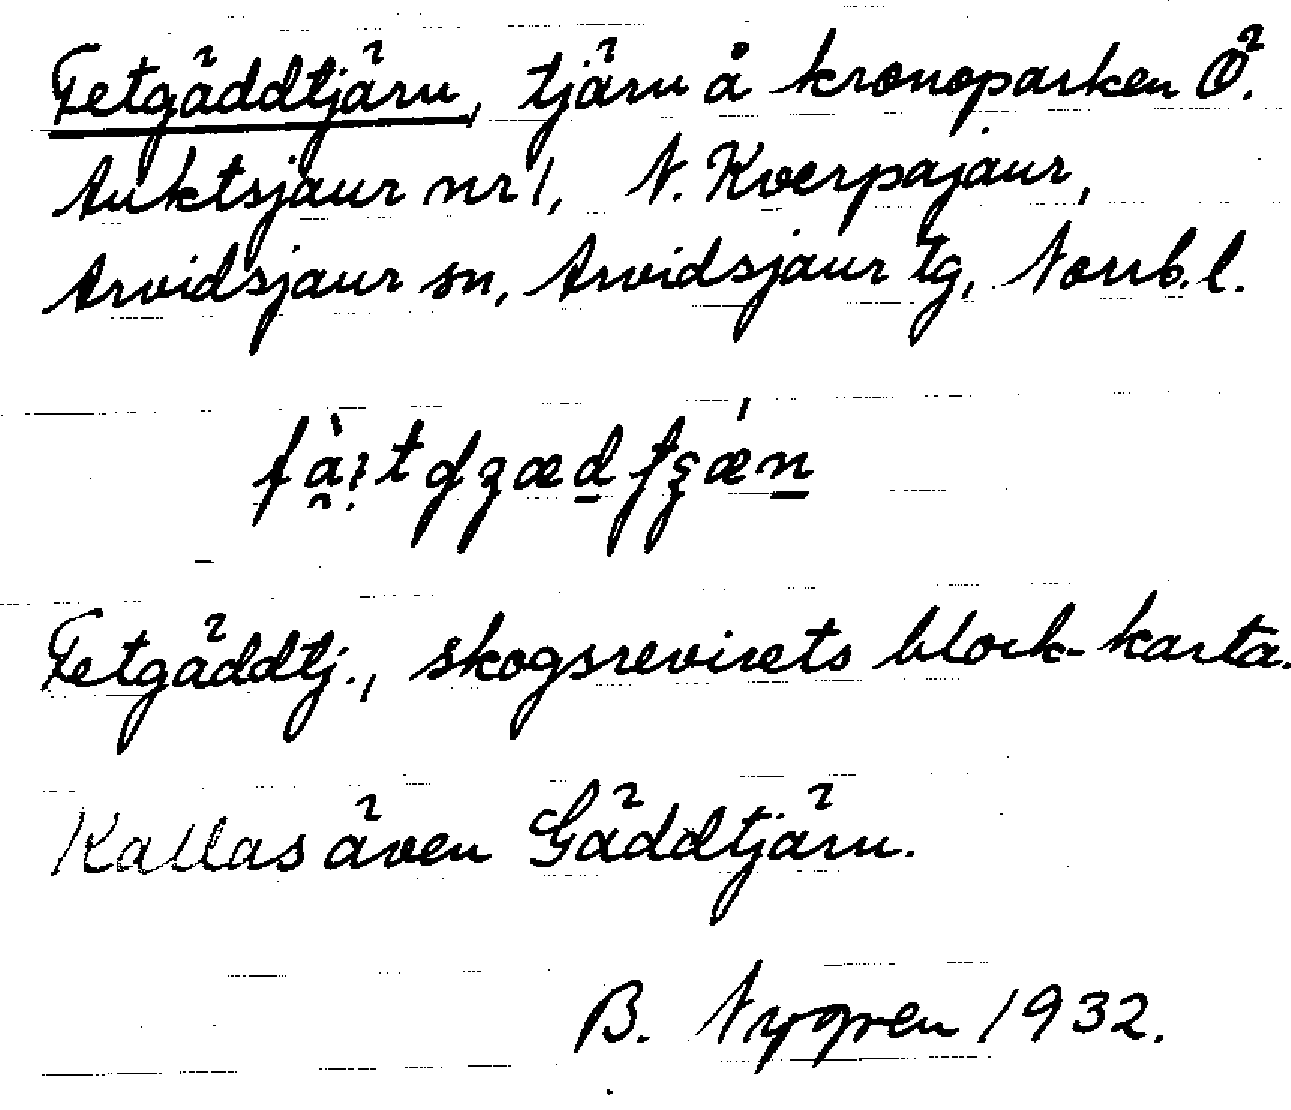 Fetgäddtjärn, tjärn å kronoparken Ö.
Auktsjaur nr 1, N. Kverpajaur,
Arvidsjaur sn, Arvidsjaur tg, Norrb. l.
Fetgäddtj., skogsrevirets block-karta.
Kallas även Gäddtjärn.
B. Nygren 1932.